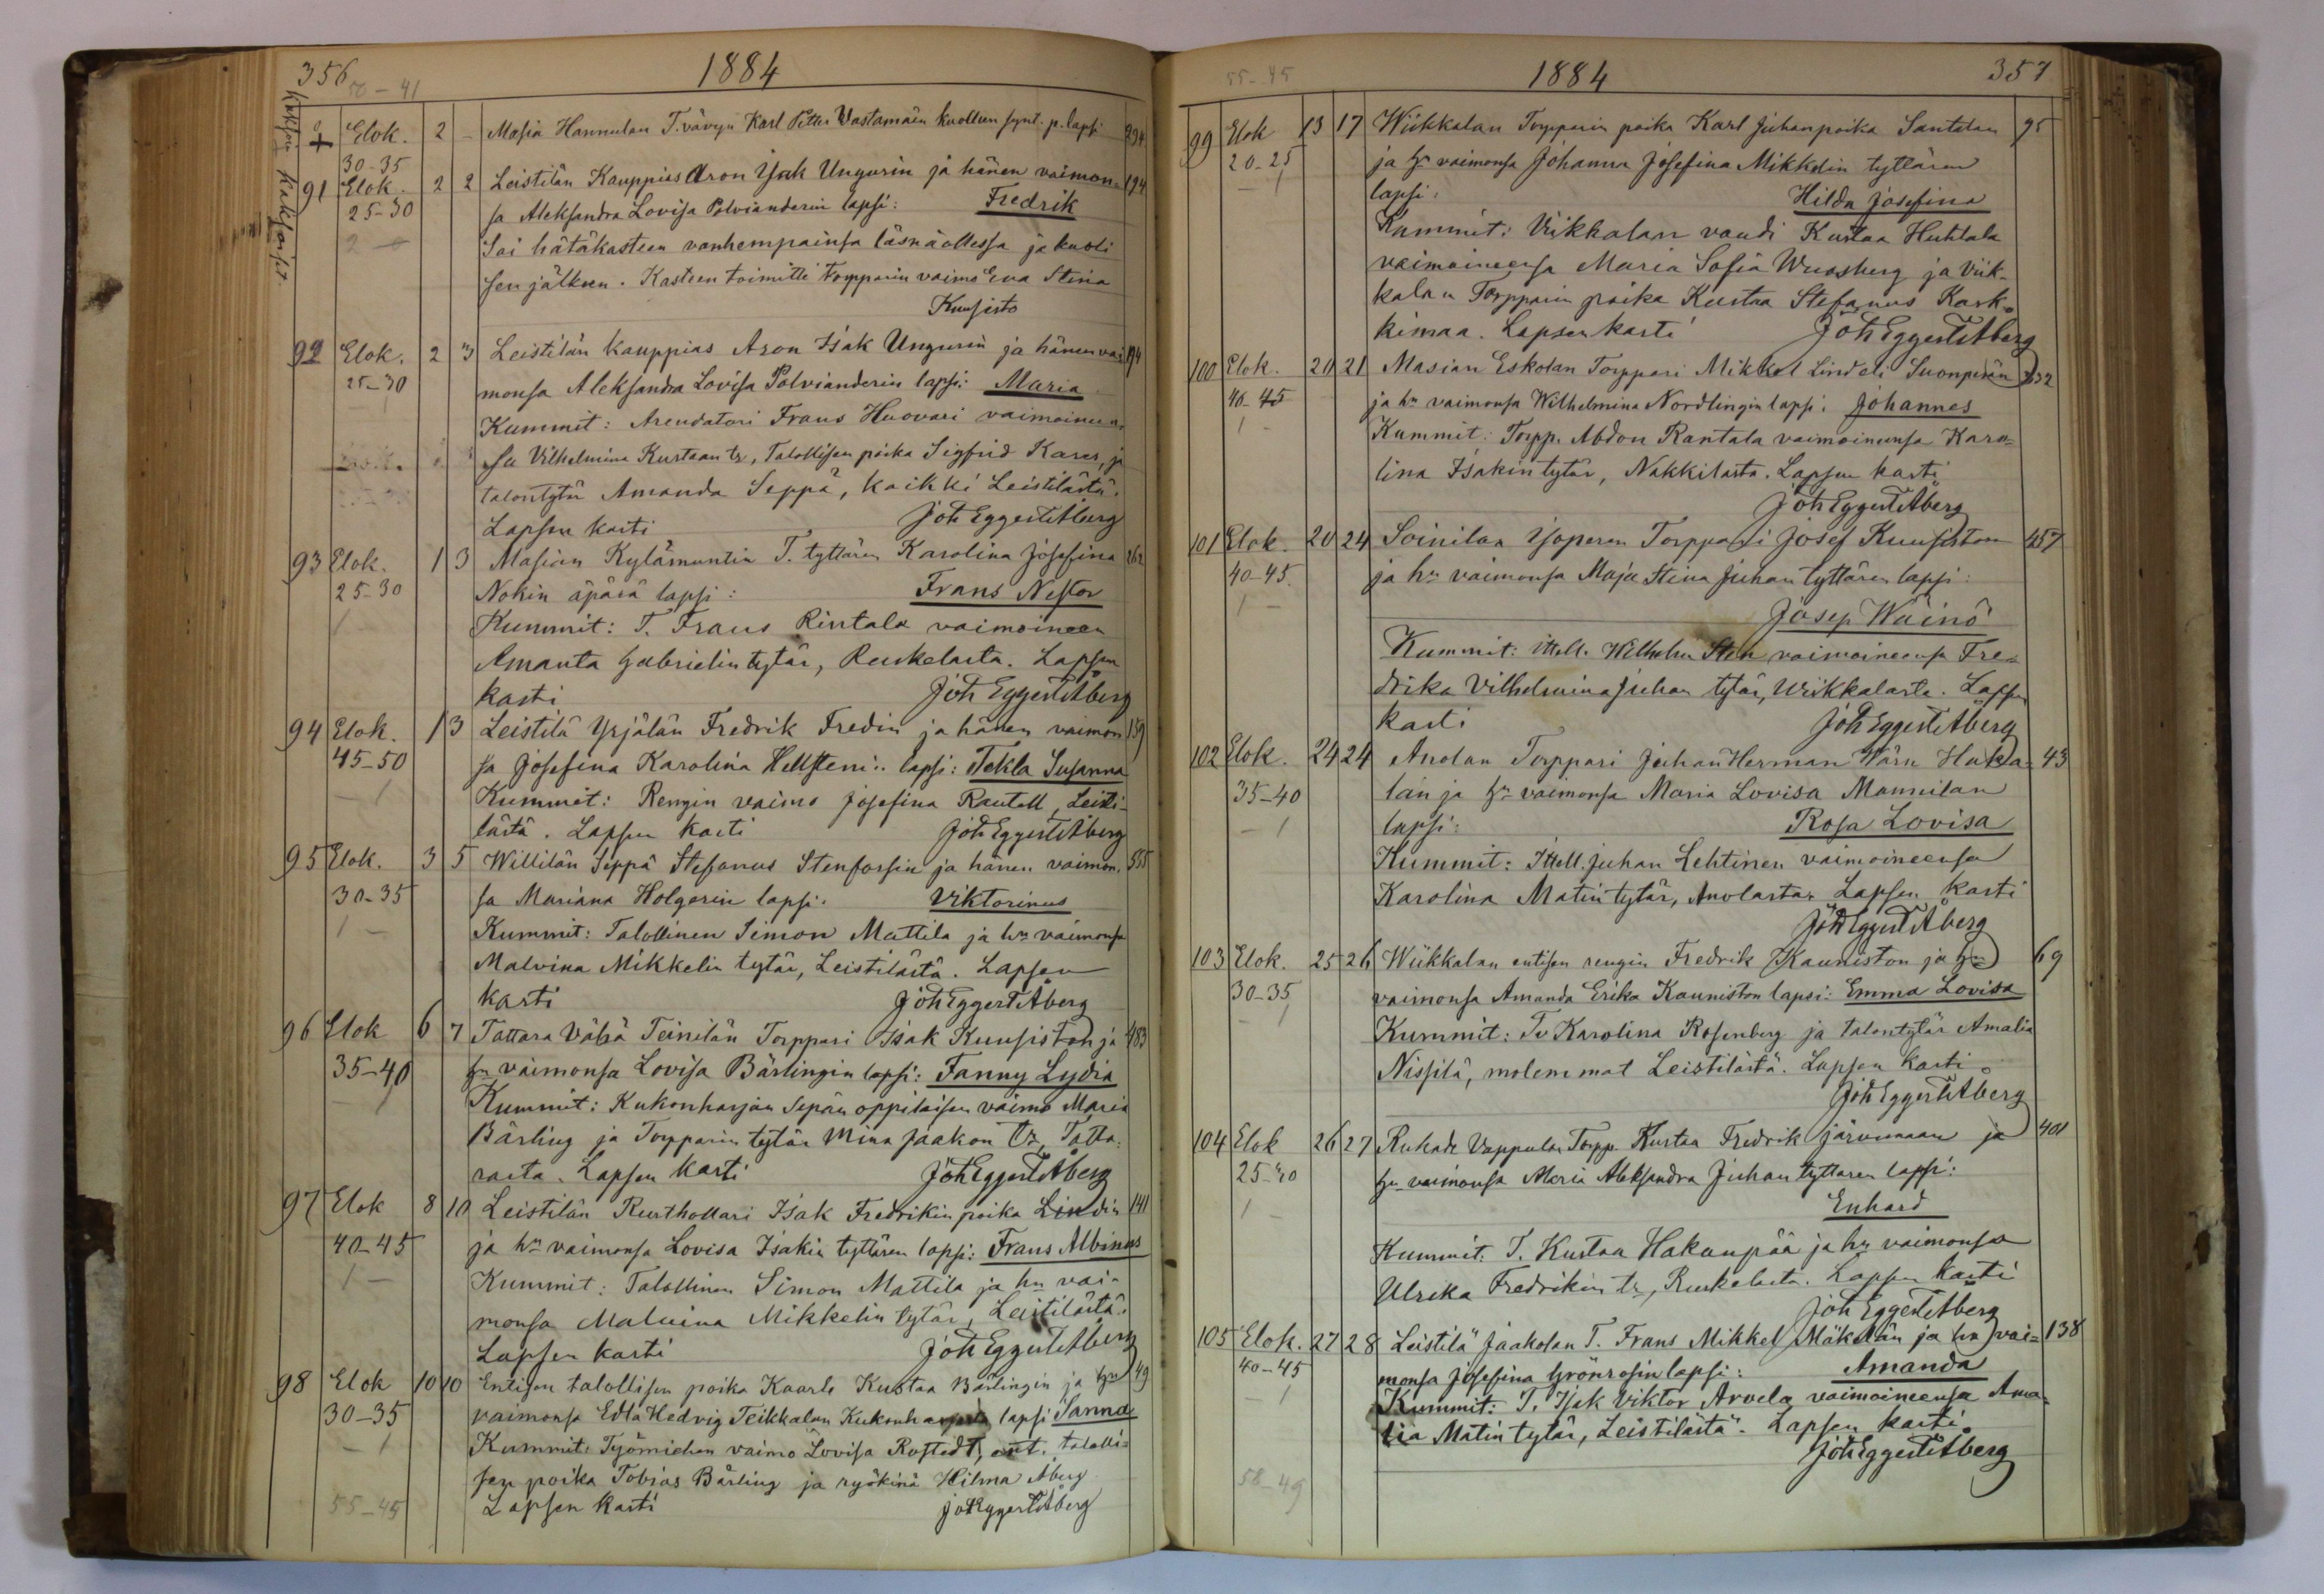 356 50-41
1884
kaksoset Kaksoiset
† Elok. 2 - Masia Hannulan T. vävyn Karl Petter Vastamäen kuolleen synt. p. lapsi 294
30-35
91 Elok. 2 2 Leistilän Kauppias Aron Isak Ungurin ja hänen vaimon- 194
25-30 sa Aleksandra Lovisa Polvianderin lapsi: Fredrik
2 - Sai hätäkasteen vanhempainsa läsnäollessa ja kuoli
sen jälkeen. Kasteen toimitti Torpparin vaimo Eva Stina
Kuusisto
92 Elok. 2 3 Leistilän kauppias Aron Isak Ungurin ja hänen vai 194
25-30 monsa Aleksandra Lovisa Polvianderin lapsi: Maria
1 Kummit: Arendatori Frans Huovari vaimoineen-
sa Vilhelmina Kustaan tr, Talollisen poika Sigfrid Kares, ja
talontytär Amanda Seppä, kaikki Leistilästä.
Lapsen kasti Joh Eggert Åberg
93 Elok. 1 3 Masian Kylämuntin T. tyttären Karolina Josefina 262
25-30 Nokin äpärä lapsi: Frans Nestor
1 - Kummit: T. Frans Rintala vaimoineen
Amanta Gabrielin tytär, Ruskelasta. Lapsen
kasti Joh Eggert Åberg
94 Elok. 1 3 Leistilä Yrjälän Fredrik Fredin ja hänen vaimon 159
45-50 sa Josefina Karolina Hellstenin lapsi: Tekla Susanna
- 1 Kummit: Rengin vaimo Josefina Rautell, Leisti-
lästä. Lapsen kasti Joh Eggert Åberg
95 Elok. 3 5 Willilän Seppä Stefanus Stenforsin ja hänen vaimon- 555
30-35 sa Mariana Holgerin lapsi: Viktorinus
1 - Kummit: Talollinen Simon Mattila ja hn vaimonsa
Malvina Mikkelin tytär, Leistilästä. Lapsen
kasti Joh Eggert Åberg
96 Elok 6 7 Tattara Vähä Teinilän Torppari Isak Kuusiston ja 483
35-40 hn vaimonsa Lovisa Bärlingin lapsi: Fanny Lydia
- 1 Kummit: Kukonharjan Sepän oppilaisen vaimo Maria
Bärling ja Torpparin tytär Mina Jaakon tr, Tatta-
rasta. Lapsen kasti Joh Eggert Åberg
97 Elok 8 10 Leistilän Rusthollari Isak Fredrikin poika Lindin 141
40-45 ja hn vaimonsa Lovisa Isakin tyttären lapsi: Frans Albinus
1 - Kummit: Talollinen Simon Mattila ja hn vai-
monsa Malvina Mikkelin tytär, Leistilästä.
Lapsen kasti Joh Eggert Åberg
98 Elok 10 10 Entisen talollisen poika Kaarle Kustaa Bärlingin ja hn 49
30-35 vaimonsa Edla Hedvig Teikkalan Kukonharjasta lapsi Sanna
- 1 Kummit: Työmiehen vaimo Lovisa Rostedt, ent. talolli-
sen poika Tobias Bärling ja ryökinä Hilma Åberg
55-45 Lapsen kasti Joh Eggert Åberg
55-45 1884 357
99 Elok 13 17 Wiikkalan Torpparin poika Karl Juhanpoika Santalan 95
20-25 ja hn vaimonsa Johanna Josefina Mikkelin tyttären
- 1 lapsi: Hilda Josefina
Kummit: Viikkalan vaudi Kustaa Huhtala
vaimoineensa Maria Sofia Wuosberg ja Viik-
kalan Torpparin poika Kustaa Stefanus Kark-
kimaa. Lapsen kasti Joh Eggert Åberg
100 Elok. 20 21 Masian Eskolan Torppari Mikkel Lindeli Suonpään 232
40-45 ja hn vaimonsa Wilhelmina Nordlingin lapsi: Johannes
1 - Kummit: Torpp. Abdon Rantala vaimoineensa Karo-
lina Isakin tytär, Nakkilasta. Lapsen kasti
Joh Eggert Åberg
101 Elok. 20 24 Soinilan Yoperen Torppari Josef Kuusiston 457
40-45. ja hn vaimonsa Maja Stina Juhan tyttären lapsi:
1 - Josep Wäinö
Kummit: Ittell. Wilhelm Sten vaimoineensa Fre-
drika Vilhelmina Juhan tytär, Wiikkalasta. Lapsen
kasti Joh Eggert Åberg
102 Elok. 24 24 Anolan Torppari Juhan Herman Wärn Haka- 43
35-40 län ja hn vaimonsa Maria Lovisa Mannilan
- 1 lapsi: Rosa Lovisa
Kummit: Ittell. Juhan Lehtinen vaimoineensa
Karolina Matin tytär, Anolasta. Lapsen kasti
Joh Eggert Åberg
103 Elok. 25 26 Wiikkalan entisen rengin Fredrik Kauniston ja hn 69
30-35 vaimonsa Amanda Erika Kauniston lapsi: Emma Lovisa
- 1 Kummit: Tv Karolina Rosenberg ja talontytär Amalia
Nissilä, molemmat Leistilästä. Lapsen kasti
Joh Eggert Åberg
104 Elok 26 27 Ruhade Vappulan Torpp. Kustaa Fredrik Järvimaan ja 401
25-30 hn vaimonsa Maria Aleksandra Juhan tyttären lapsi:
1 - Enhard
Kummit: T. Kustaa Hakanpää ja hn vaimonsa
Ulrika Fredrikin tr, Ruskelasta. Lapsen kasti
Joh Eggert Åberg
105 Elok. 27 28 Leistilä Jaakolan T. Frans Mikkel Mäkelän ja hn vai- 138
40-45 monsa Josefina Grönrosin lapsi: Amanda
- 1 Kummit: T. Isak Viktor Arvela vaimoineensa Ama-
lia Matin tytär, Leistilästä. Lapsen kasti
Joh Eggert Åberg
58-49